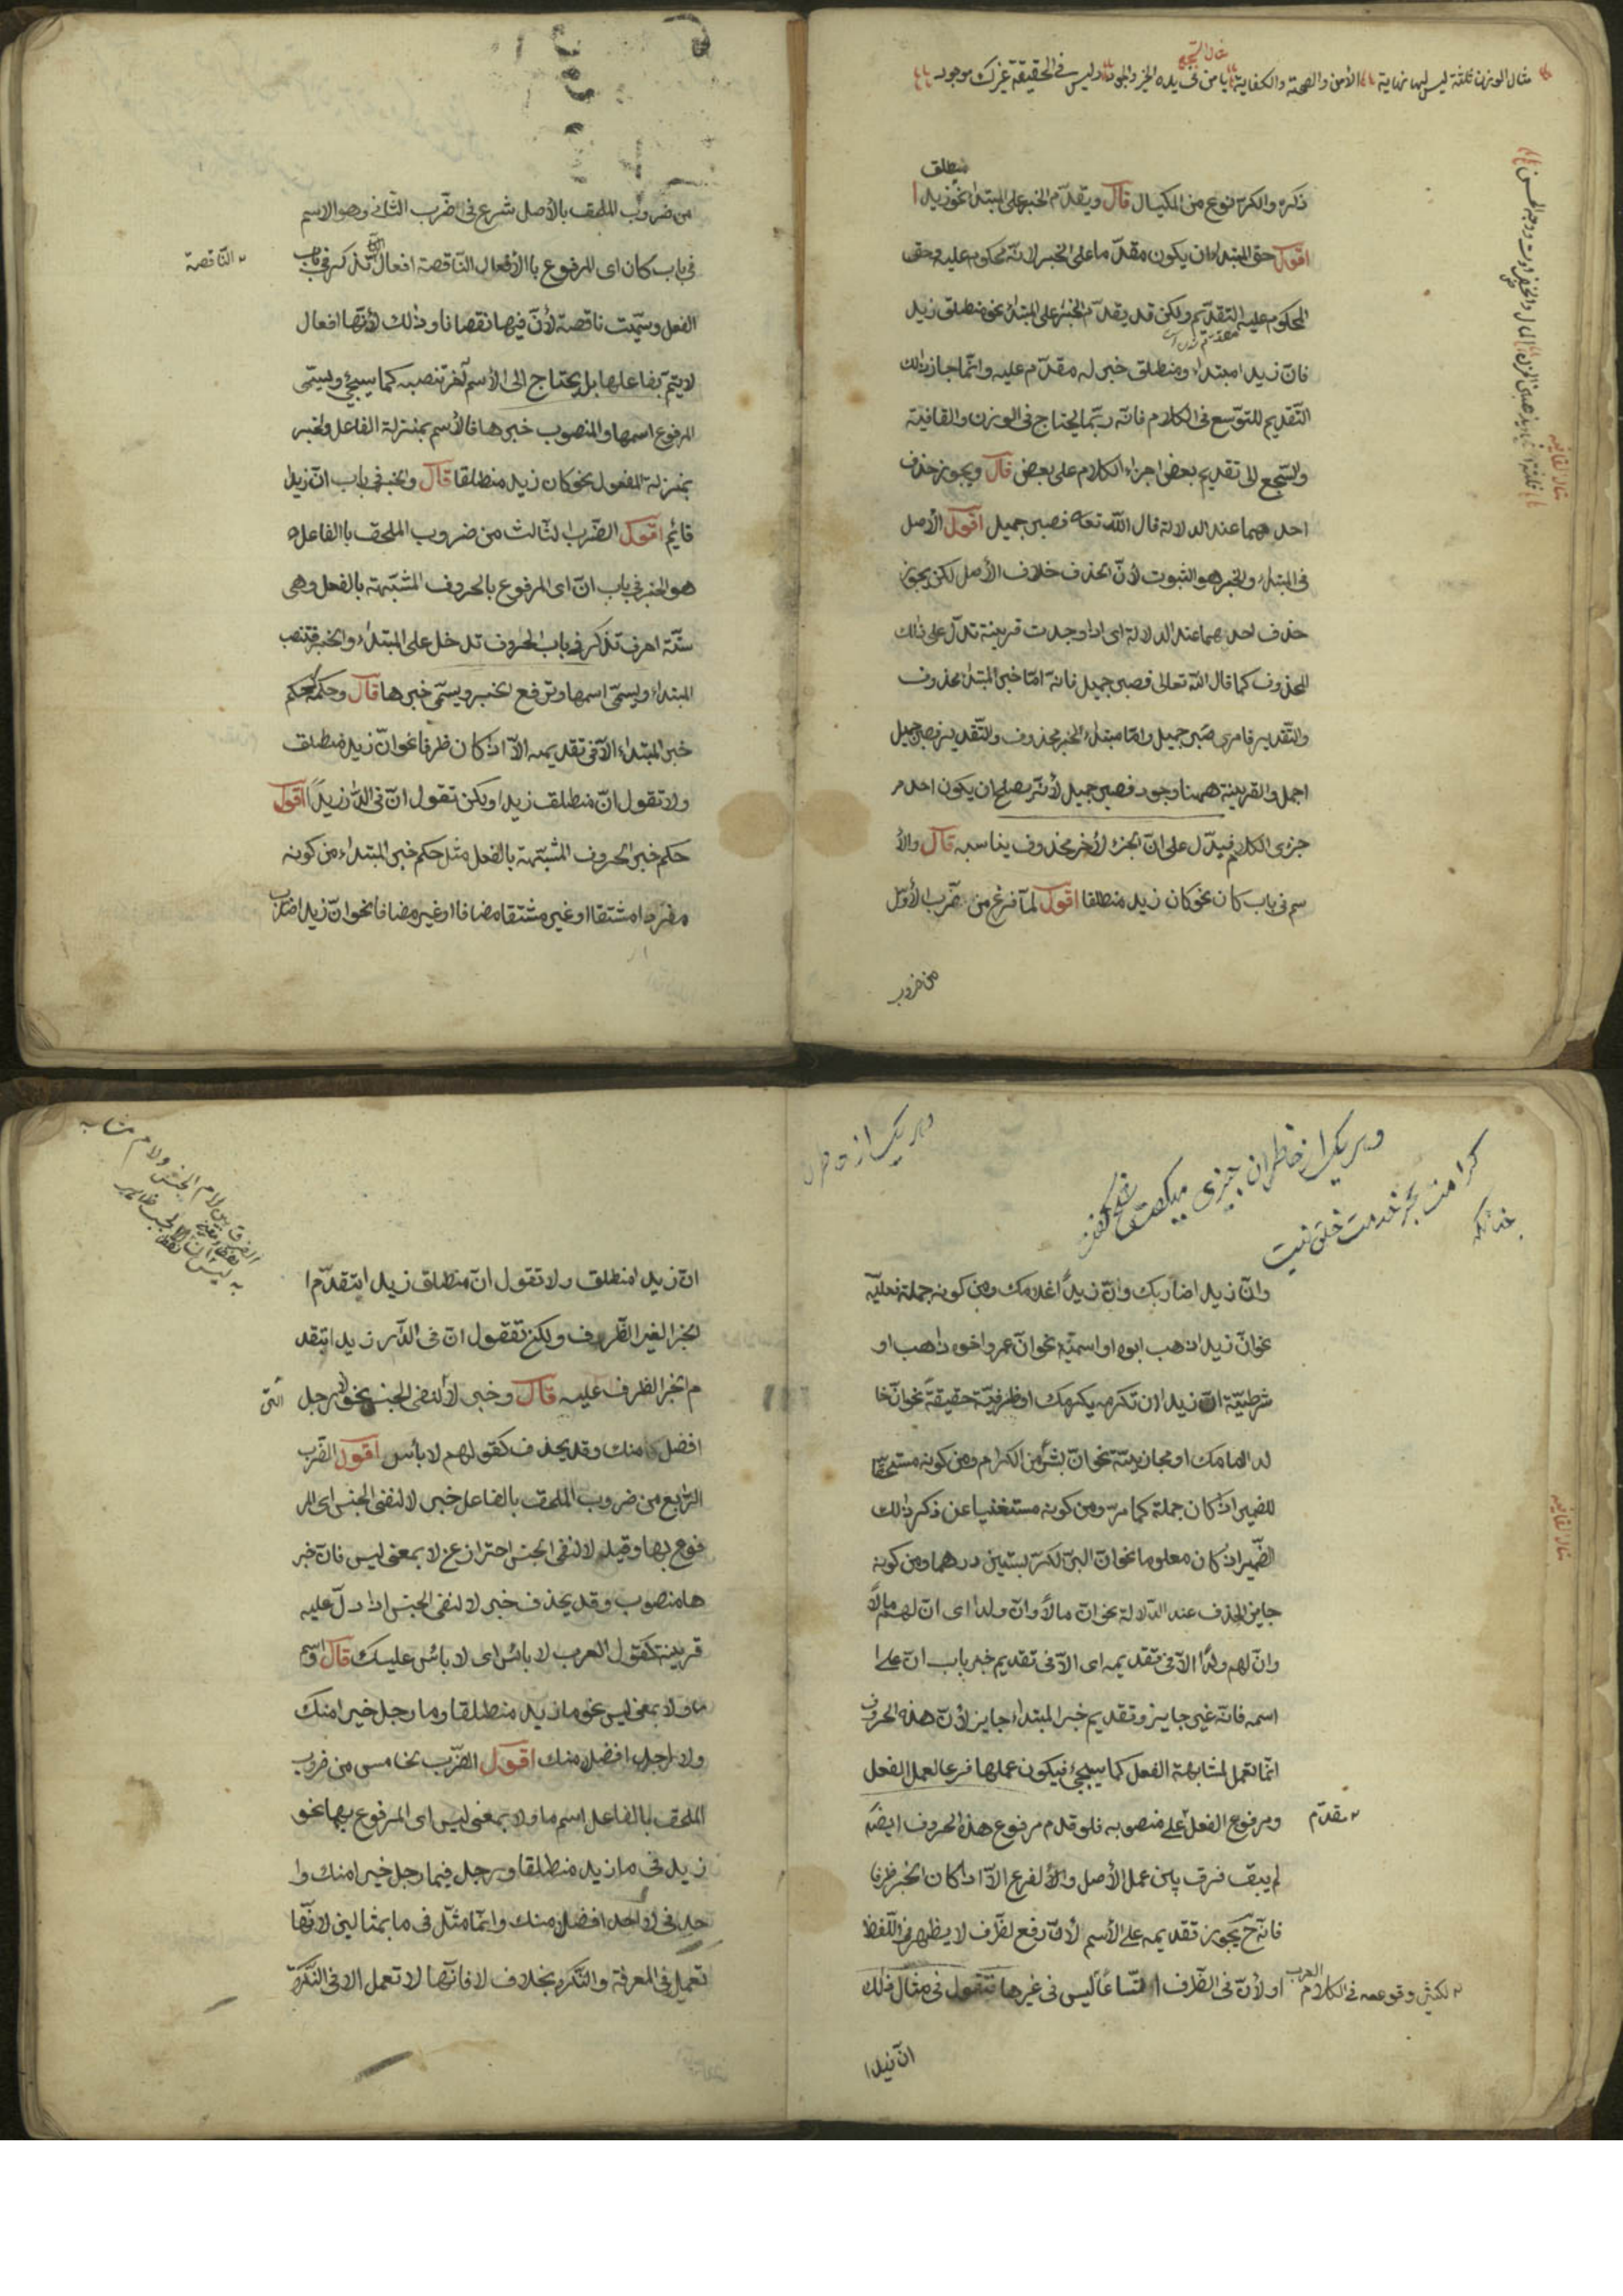 مثال الوزن ثلثة ليس لها نهاية الأمن والصحة والكفاية يا من فى يده الخير والجود وليس فى الحقيقة غيرك موجود
مثال السجع
مثال القافيه
منطلق
ذكره والكر نوع من المكيال قال ويقدّم الخبر على المبتداء نحو زيد
اقول حق المبتداء ان يكون مقدّما على الخبر لانّه محكوم عليه وحق
المحكوم عليه التقديم ولكن قد يقدّم الخبر على المبتداء نحو منطلق زيد
فانّ زيدا مبتداء ومنطلق خبر له مقدّم عليه وانّما جاز ذلك
التّقديم للتوسّع فى الكلام فانّه ربّما يحتاج فى الوزن والقافية
والسّجع الى تقديم بعض اجزاء الكلام على بعض قال ويجوز حذف
احدهما عند الدلالة قال اللّه تعه فصبر جميل اقول الأصل
فى المبتداء والخبر هو الثبوت لأنّ الحذف خلاف الأصل لكن يجوز
حذف احدهما عند الدلالة اى اذا وجدت قرينة تدلّ على ذلك
المحذوف كما قال اللّه تعالى فصبر جميل فانّه امّا خبر المبتداء محذوف
والتّقدير فامرى صبر جميل وامّا مبتداء الخبر محذوف والتّقدير فصبر جميل
اجمل والقرينة ههنا وجود فصبر جميل لأنّه يصلح ان يكون احد م
جزءى الكلام فيدّل على انّ الجزء الأخر محذوف يناسبه قال والأ
سم فى باب كان نحو كان زيد منطلقا اقول لمّا فرغ من ضّرب الأوّل
من ضروب
من ضروب الملحق بالأصل شرع فى الضّرب الثّانى وهو الاسم
فى باب كان اى المرفوع باالأفعال النّاقصة افعال تذكر فى باب
النّاقصة
الفعل وسمّيت ناقصة لأنّ فيها نقصانا وذلك لأنّها افعال
لا يتمّ بفاعلها بل يحتاج الى الأسم آخر تنصبه كما سيجئ ويسمّى
المرفوع اسمها والمنصوب خبرها فالأسم بمنزلة الفاعل والخبر
بمنزلة المفعول نحو كان زيد منطلقا قال والخبر فى باب انّ زيدا
قائم اقول الضّرب الثّالث من ضروب الملحق باالفاعل
هو الخبر فى باب انّ اى المرفوع بالحروف المشبّهة بالفعل وهى
ستّة احرف تذكر فى باب الحروف تدخل على المبتداء والخبر فتنصب
المبتداء ويسمّى اسمها وترفع الخبر ويسمّى خبرها قال وحكمه كحكم
خبر المبتداء الّا فى تقديمه الّا اذا كان ظرفا نحو انّ زيدا منطلق
ولا تقول انّ منطلق زيدا ولكن تقول انّ فى الدّار زيداً اقول
حكم خبر الحروف المشبّهة بالفعل مثل حكم خبر المبتداء من كونه
مفردا مشتقا او غير مشتقا مضافا او غير مضافا نحو انّ زيدا ضارب
وهر يك از خاطران چيزى ميگفت
كرامت بجز خدمت خلق نيست
وانّ زيدا ضاربك وانّ زيداً غلامك ومن كونه جملة فعليّه
نحو انّ زيدا ذهب ابوه او اسميّه نحو انّ عمروا اخوه ذاهب او
شرطيّة انّ زيدا ان تكرمه يكرمك او ظرفيّة حقيقةً نحو انّ خا
لدا امامك او مجازيّة نحو انّ بشراً من الكرام ومن كونه مستحقّا
للضمير اذا كان جملة كما مرّ ومن كونه مستغنيا عن ذكر ذلك
الضّمير اذا كان معلوما نحو انّ البرّ الكرّ بستّين درهما ومن كونه
جايز الحذف عند الدّلالة نحو انّ مالاً وانّ ولدا اى انّ لهم مالاً
وانّ لهم ولدًا الّا فى تقديمه اى الّا فى تقديم خبر باب انّ على ا
اسمه فانّه غير جايز وتقديم خبر المبتداء جايز لأنّ هذه الحروف
انّما تعمل لمشابهة الفعل كما سيجئ فيكون عملها فرعا لعمل الفعل
ومرفوع الفعل على منصوبه فلو قدم مرفوع هذه الحروف ايضًا
مقدّم
لم يبق فرق بين عمل الأصل والألفرع الّا اذا كان الخبر ظرفا
فانّه ح يجوز تقديمه على الأسم لأنّ رفع لظّرف لا يظهر فى اللّفظ
او لأنّ فى الظّرف اتّساعًا ليس فى غيرها فتقول فى مثال ذلك
لكثرة وقوعه فى الكلام العرب
انّ زيدا
الفرق بين لام الجنس ولام مشابه
انّ زيدا منطلق ولا تقول انّ منطلق زيد ابتقدّم ا
لخبر الغير الظّرف ولكن تققول انّ فى الدّار زيدا بتقد
م الخبر الظرف عليه قال وخبر لا لنفى الجنس نحو لا رجل
افضل منك وقد يحذف كقولهم لا بأس اقول الضّرب
الرّابع من ضروب الملحق بالفاعل خبر لا لنفى الجنس اى المر
فوع بها وقيل لا لنفى الجنس احتراز عن لا بمعنى ليس فانّ خبر
ها منصوب وقد يحذف خبر لا لنفى الجنس اذا دلّ عليه
قرينة كقول العرب لا بائس اى لا بائس عليك قال واسم
ما ولا بمعنى ليس نحو ما زيد منطلقا وما رجل خيرا منك
ولا رجل افضل منك اقول الضّرب الخامس من ضروب
الملحق باالفاعل اسم ما ولا بمعنى ليس اى المرفوع بهما نحو
زيد فى ما زيد منطلقا ورجل فيما رجل خيرا منك وا
حد فى لا احد افضل منك وانّما مثّل فى ما بمثالين لانّها
تعمل فى المعرفة والنّكره بخلاف لا فانّها لا تعمل الا فى النّكرة